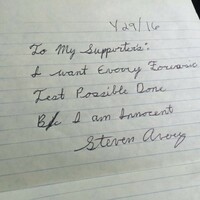 4/29/16
To My Supporters:
I want Every Forensic
Test Possible Done
B/c I am Innocent
Steven Avery